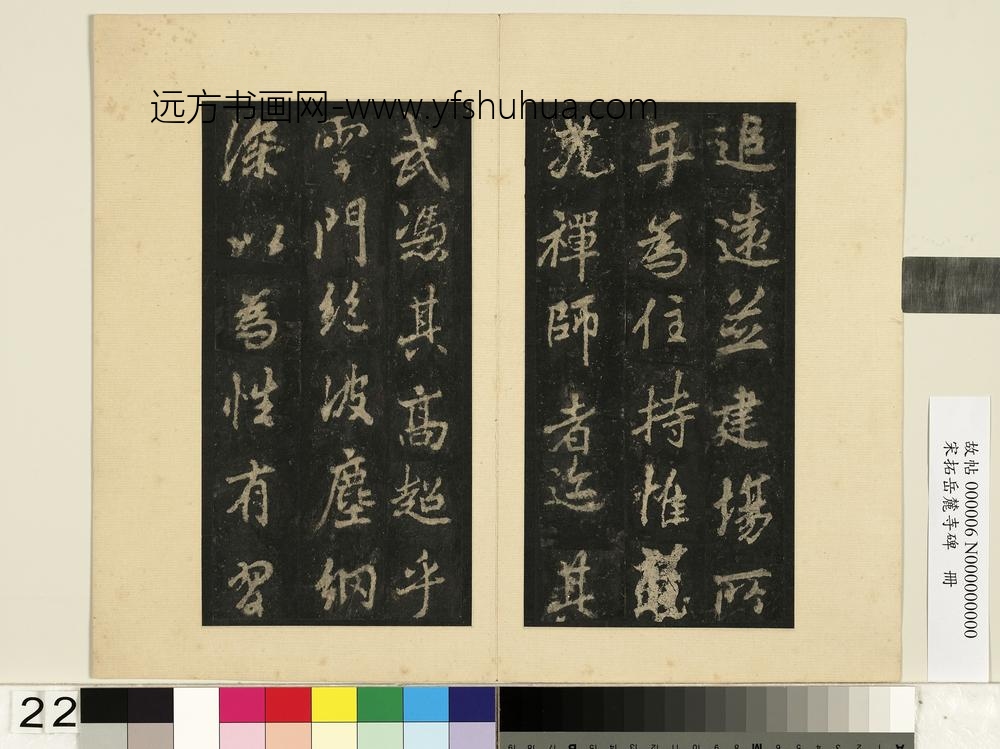 远方书画网-www.yfshuhua.com
追遠並建場所
牙為住持惟
禪師者迩其
武憑其高超乎
雲門絕波塵網
深以為性有習
故帖 000006 N000000000
宋拓岳麓寺碑 冊
22